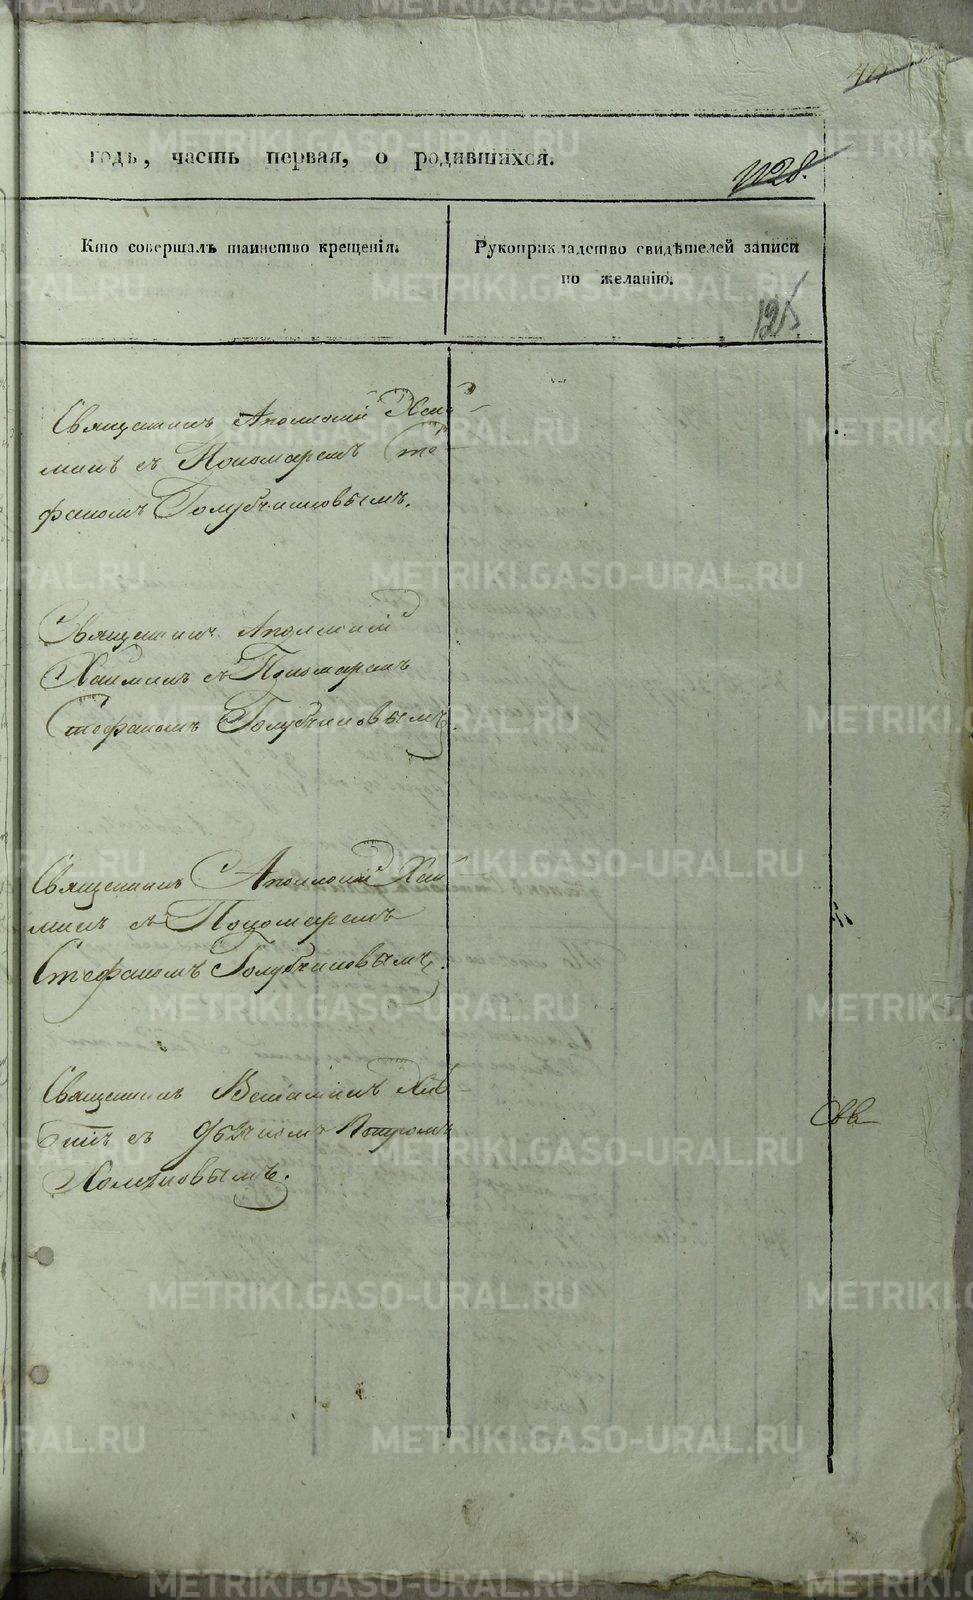 годъ, часть первая, о родившихся.
1128.
Кто совершалъ таинство крещенія.
Рукоприкладство свидѣтелей записи
по желанію.
125.
Священникъ Аполлоній Хай-
минъ съ Пономаремъ Сте-
фаномъ Голубчиковымъ.
Священникъ Аполлоній
Хайминъ съ Пономаремъ
Стефаномъ Голубчиковымъ.
Священникъ Аполлоній Хай
минъ съ Пономаремъ
Стефаномъ Голубчиковымъ.
Священникъ Веніаминъ
съ Петромъ
METRIKI.GASO-URAL.RU